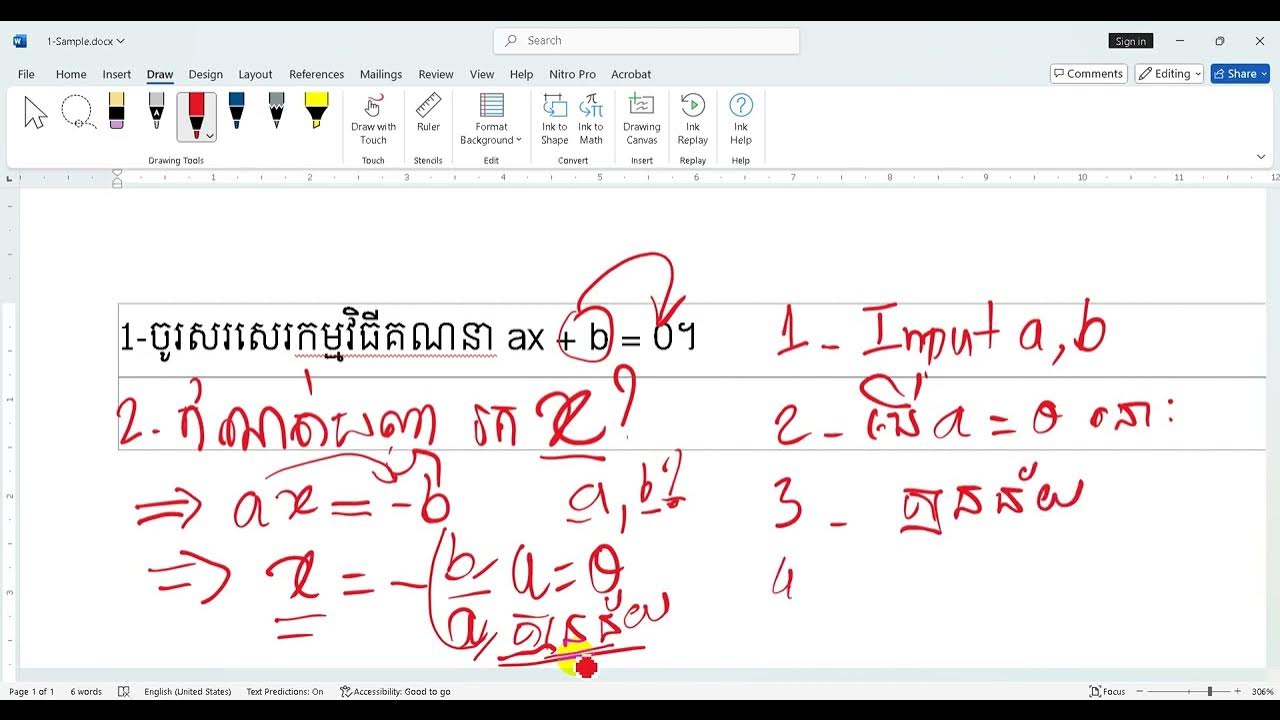 1-Sample.docx
Search
Sign in
File Home Insert Draw Design Layout References Mailings Review View Help Nitro Pro Acrobat
Comments Editing Share
Draw with Touch
Ruler
Format Background
Ink to Shape
Ink to Math
Drawing Canvas
Ink Replay
Ink Help
Drawing Tools Touch Stencils Edit Convert Insert Replay Help
1 2 3 4 5 6 7 8 9 10 11 12
1-ចូរសរសេរកម្មវិធីគណនា ax + b = 0។
2. កំណត់បញ្ហា រក x?
⇒ ax = -b a, b?
⇒ x = - b/a, a = 0
គ្មានន័យ
1 - Input a, b
2 - បើ a = 0 នោះ:
3 - គ្មានន័យ
4
Page 1 of 1 6 words English (United States) Text Predictions: On Accessibility: Good to go Focus 306%